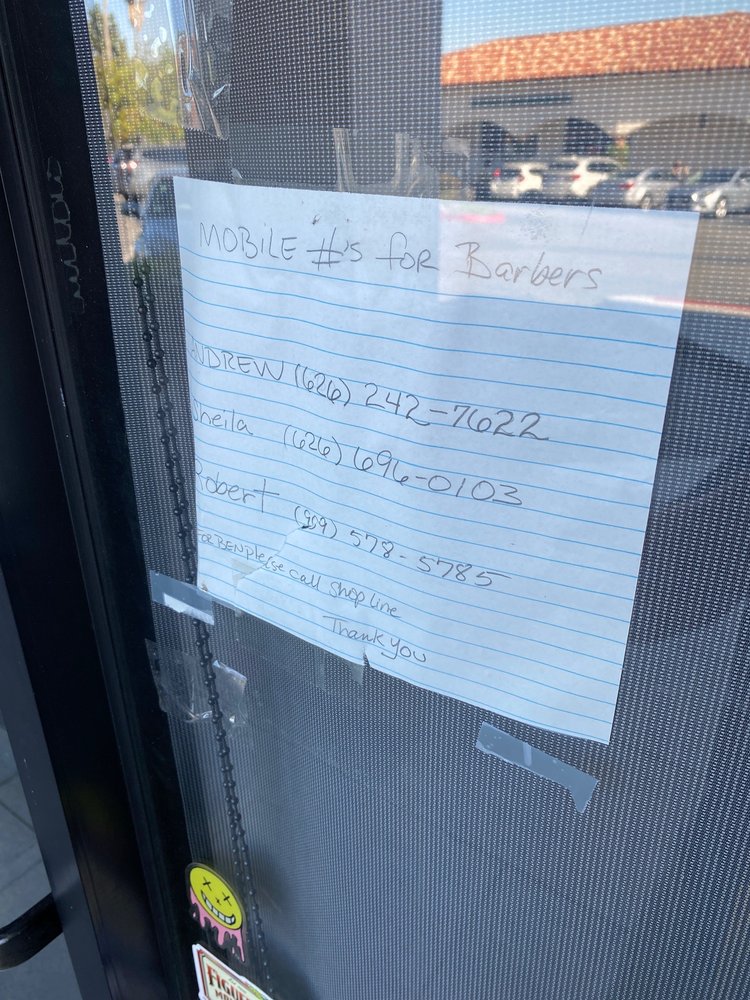 MOBILE #'s foR Barbers
ANDREW (626) 242-7622
Sheila (626) 696-0103
Robert (909) 578-5785
FOR BEN please call shop line
Thank you